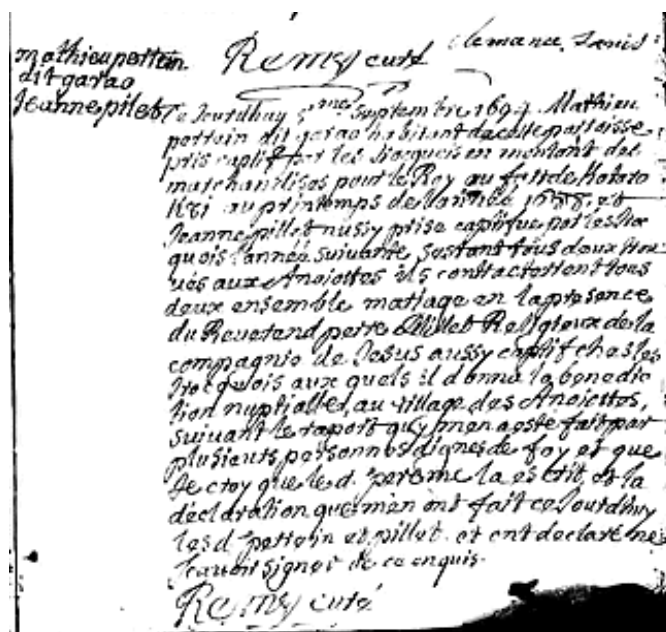 Remy curé
mathieu perttein
dit garao
Jeanne pilet
Ce Jourdhuy 5me Septembre 169 Mathieu
perttein dit garao habitant de cette parroisse
pris captif par les Irocquois en montant des
marchandises pour le Roy au fort de Kataro
K8i au printemps de lannée et
Jeanne pillet aussy prise captifue par les Iro
quois lannée suivante, sestant tous deux trou
ués aux Anoiottes ils contracterent tous
deux ensemble mariage en la presence
du Reverend perre Millet Religieux de la
compagnie de Jesus aussy captif ches les
Irocquois aux quels il donna la benedic
tion nuptialle, au village des Anoiottes,
suivant le raport quy men a esté fait par
plusieurs personnes dignes de foy et que
Je croy que le d. pere me la escrit, et la
déclaration que men ont fait ce Jourdhuy
les d. perttein et pillet. et ont declaré ne
scavoir signer de ce enquis.
Remy curé